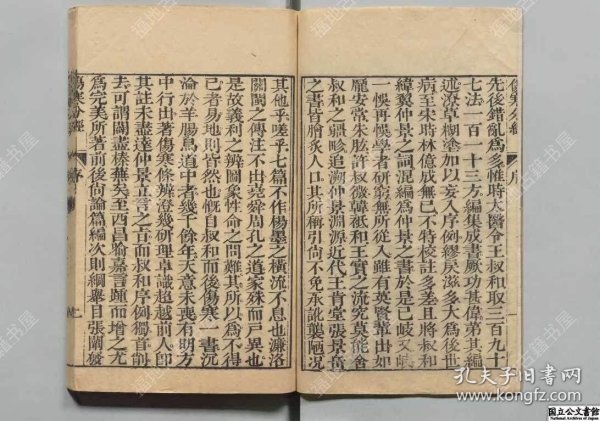 傷寒分經 序
先後錯亂爲多惟時大醫令王叔和取三百九十
七法一百一十三方編集成書厥功甚偉第其編
述潦草糊塗加以妄入序例繆戾滋多大爲後世
病至宋時林億成無已不特校註多差且將叔和
緯翼仲景之詞混編爲仲景之書於是已岐又岐
一悞再悞學者研窮無所從入雖有英賢輩出如
龐安常朱肱許叔微韓祗和王實之流究莫能舍
叔和之疆畛追溯仲景淵源近代王肯堂張景岳
之書皆膾炙人口其所稱引尚不免承訛襲陋况
其他乎嗟乎七篇不作楊墨之橫流不息也濂洛
關閩之傳註不出堯舜周孔之道家殊而戸異也
是故義利之辨圖象性命之問難其所以爲不得
已者易地則皆然也慨自叔和而後傷寒一書沉
淪於羊腸鳥道中者幾千餘年天意未喪有明方
中行出著傷寒條辨澄幾研理卓識超越前人卽
其註未盡達仲景立言之吉而叔和序例獨首削
去可謂闢盡榛蕪矣至西昌喻嘉言踵而增之尤
爲完美所著前後尚論篇編次則綱舉目張闡發
傷寒分經 序
孔夫子旧书网
www.kongfz.com
国立公文書館
National Archives of Japan